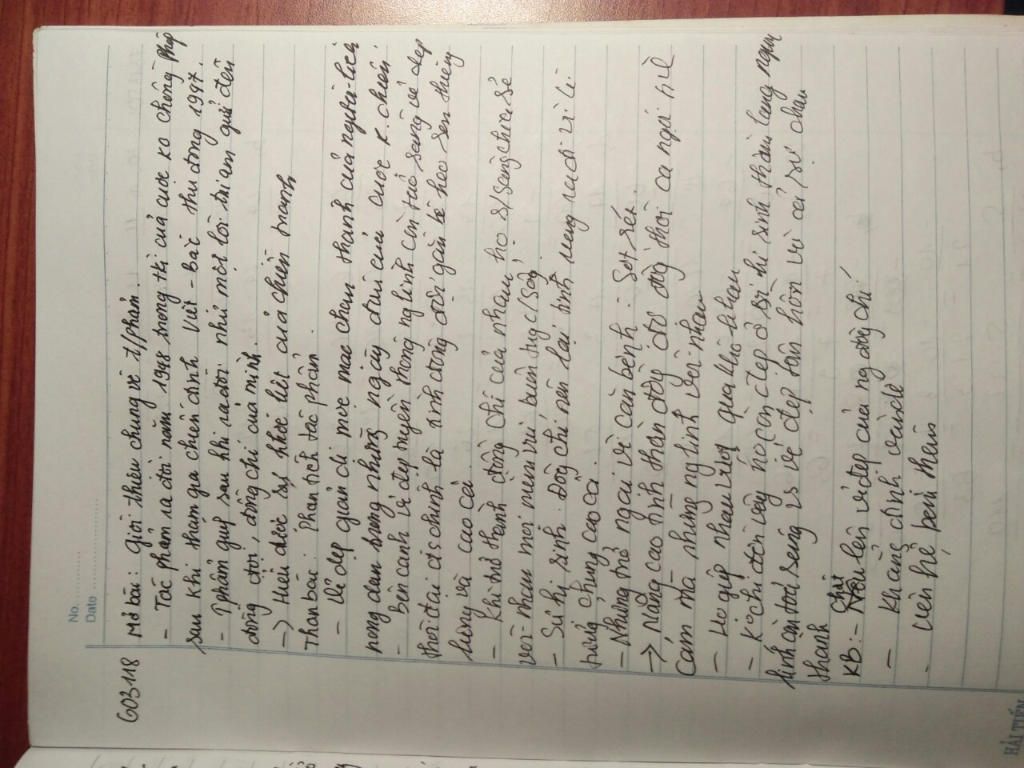 No.
Date
603118
Mở bài: Giới thiệu chung về t/phẩm.
- Tác phẩm ra đời năm 1948 trong thì của cuộc ko chống Pháp
sau khi tham gia chiến dịch Việt - Bắc thu đông 1947.
- T/phẩm sau khi ra đời như một lời tri ân gửi đến
đồng đội, đồng chí của mình.
-> Hiểu được sự khốc liệt của chiến tranh
Thân bài: Phân tích tác phẩm
- Vẻ đẹp giản dị mộc mạc chân thành của người lính
nông dân trong những ngày đầu của cuộc k. chiến
- Bên cạnh vẻ đẹp truyền thống ng lính còn toả sáng vẻ đẹp
thời đại đó chính là tình đồng đội gắn bó keo sơn thiêng
liêng và cao cả.
- Khi trở thành đồng chí của nhau họ s/sàng chia sẻ
với nhau mọi niềm vui buồn trong c/sống
- Sự hy sinh. Đồng chí nên lại tình cùng vì lí
tưởng chung cao cả.
- Những trở ngại về căn bệnh: Sốt rét.
-> Nâng cao tinh thần đồng đội đồng thời ca ngợi h/ả
Cầm mà những ng lính với nhau
- Họ giúp nhau vượt qua khó khăn
- Ko chỉ dừng vậy họ còn đẹp ở sự hi sinh thầm lặng ng
lính còn toả sáng vs vẻ đẹp tâm hồn với cả sự chân
thành
KB: - Chất lên vẻ đẹp của ng đồng chí
- Khẳng định vấn đề
- Liên hệ bản thân
HẢI TIẾN